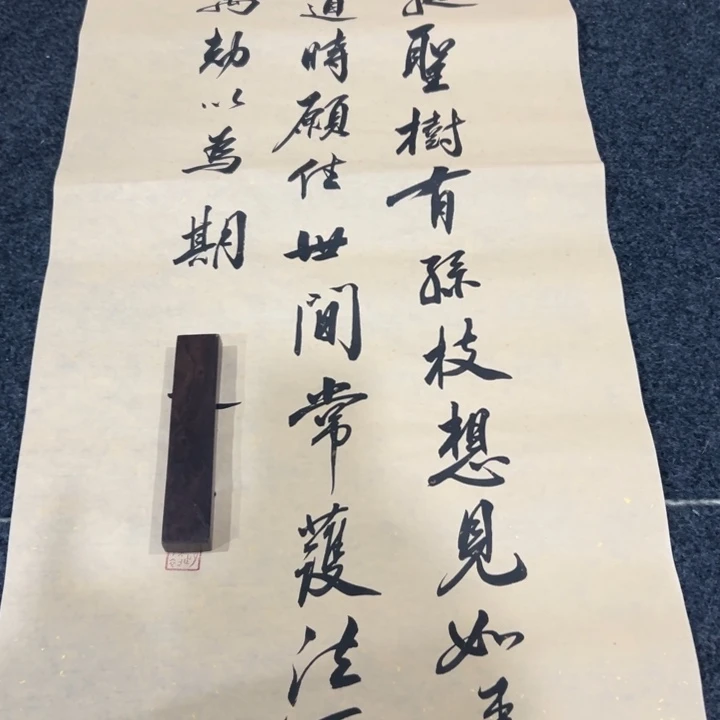 聖樹有孫枝想見如
道時願住世間常護法
劫以為期